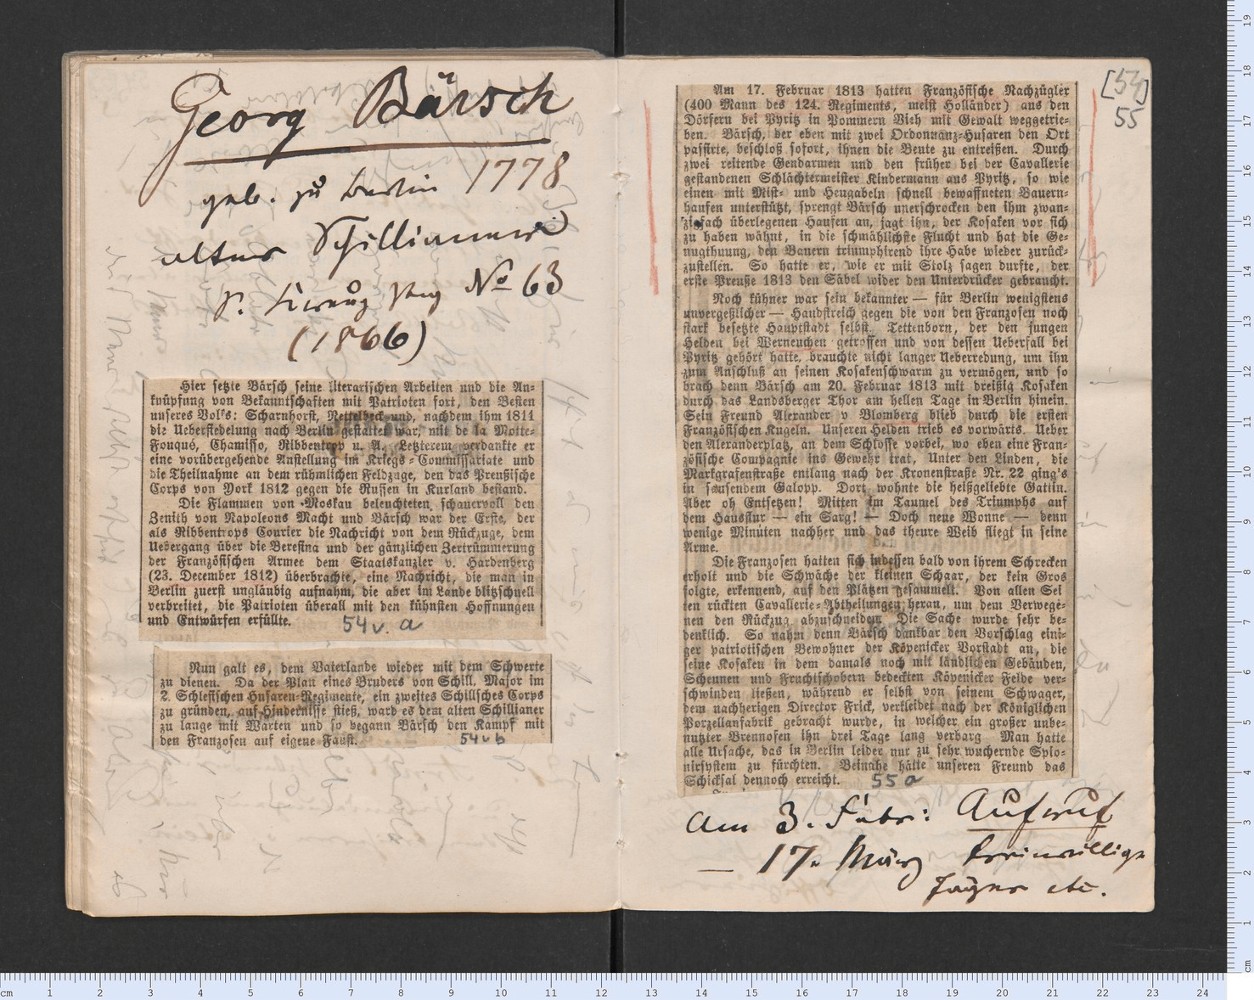 Georg Bärsch
geb. zu Berlin 1778
alter Schillianer
s. Kreuz Ztg No 63
(1866)
Hier setzte Bärsch seine literarischen Arbeiten und die An-
knüpfung von Bekanntschaften mit Patrioten fort, den Besten
unseres Volks: Scharnhorst, Nettelbeck und, nachdem ihm 1811
die Uebersiedelung nach Berlin gestattet war, mit de la Motte-
Fouqué, Chamisso, Ribbentrop u. A. Letzterem verdankte er
eine vorübergehende Anstellung im Kriegs-Commissariate und
die Theilnahme an dem rühmlichen Feldzuge, den das Preußische
Corps von York 1812 gegen die Russen in Kurland bestand.
Die Flammen von Moskau beleuchteten schauervoll den
Zenith von Napoleons Macht und Bärsch war der Erste, der
als Ribbentrops Courier die Nachricht von dem Rückzuge, dem
Uebergang über die Beresina und der gänzlichen Zertrümmerung
der Französischen Armee dem Staatskanzler v. Hardenberg
(23. December 1812) überbrachte, eine Nachricht, die man in
Berlin zuerst ungläubig aufnahm, die aber im Lande blitzschnell
verbreitet, die Patrioten überall mit den kühnsten Hoffnungen
und Entwürfen erfüllte.
54v. a
Nun galt es, dem Vaterlande wieder mit dem Schwerte
zu dienen. Da der Plan eines Bruders von Schill, Major im
2. Schlesischen Husaren-Regimente, ein zweites Schillsches Corps
zu gründen, auf Hindernisse stieß, ward es dem alten Schillianer
zu lange mit Warten und so begann Bärsch den Kampf mit
den Franzosen auf eigene Faust.
54v b
[54]
55
Am 17. Februar 1813 hatten Französische Nachzügler
(400 Mann des 124. Regiments, meist Holländer) aus den
Dörfern bei Pyritz in Pommern Vieh mit Gewalt weggetrie-
ben. Bärsch, der eben mit zwei Ordonnanz-Husaren den Ort
passirte, beschloß sofort, ihnen die Beute zu entreißen. Durch
zwei reitende Gendarmen und den früher bei der Cavallerie
gestandenen Schlächtermeister Kindermann aus Pyritz, so wie
einen mit Mist- und Heugabeln schnell bewaffneten Bauern-
haufen unterstützt, sprengt Bärsch unerschrocken den ihm zwan-
zigfach überlegenen Haufen an, jagt ihn, der Kosaken vor sich
zu haben wähnt, in die schmählichste Flucht und hat die Ge-
nugthuung, den Bauern triumphirend ihre Habe wieder zurück-
zustellen. So hatte er, wie er mit Stolz sagen durfte, der
erste Preuße 1813 den Säbel wider den Unterdrücker gebraucht.
Noch kühner war sein bekannter — für Berlin wenigstens
unvergeßlicher — Handstreich gegen die von den Franzosen noch
stark besetzte Hauptstadt selbst. Tettenborn, der den jungen
Helden bei Werneuchen getroffen und von dessen Ueberfall bei
Pyritz gehört hatte, brauchte nicht langer Ueberredung, um ihn
zum Anschluß an seinen Kosakenschwarm zu vermögen, und so
brach denn Bärsch am 20. Februar 1813 mit dreißig Kosaken
durch das Landsberger Thor am hellen Tage in Berlin hinein.
Sein Freund Alexander v Blomberg blieb durch die ersten
Französischen Kugeln. Unseren Helden trieb es vorwärts. Ueber
den Alexanderplatz, an dem Schlosse vorbei, wo eben eine Fran-
zösische Compagnie ins Gewehr trat, Unter den Linden, die
Markgrafenstraße entlang nach der Kronenstraße Nr. 22 ging's
in sausendem Galopp. Dort wohnte die heißgeliebte Gattin.
Aber oh Entsetzen! Mitten im Taumel des Triumphs auf
dem Hausflur — ein Sarg! — Doch neue Wonne — denn
wenige Minuten nachher und das theure Weib fliegt in seine
Arme.
Die Franzosen hatten sich indessen bald von ihrem Schrecken
erholt und die Schwäche der kleinen Schaar, der kein Gros
folgte, erkennend, auf den Plätzen gesammelt. Von allen Sei
ten rückten Cavallerie-Abtheilungen heran, um dem Verwege-
nen den Rückzug abzuschneiden. Die Sache wurde sehr be-
denklich. So nahm denn Bärsch dankbar den Vorschlag eini-
ger patriotischen Bewohner der Köpenicker Vorstadt an, die
seine Kosaken in dem damals noch mit ländlichen Gebäuden,
Scheunen und Fruchtschobern bedeckten Köpenicker Felde ver-
schwinden ließen, während er selbst von seinem Schwager,
dem nachherigen Director Frick, verkleidet nach der Königlichen
Porzellanfabrik gebracht wurde, in welcher ein großer unbe-
nutzter Brennofen ihn drei Tage lang verbarg Man hatte
alle Ursache, das in Berlin leider nur zu sehr wuchernde Spio-
nirsystem zu fürchten. Beinahe hätte unseren Freund das
Schicksal dennoch erreicht.
55 a
Am 3. Febr: Aufruf
— 17. März freiwillige
Jäger etc.